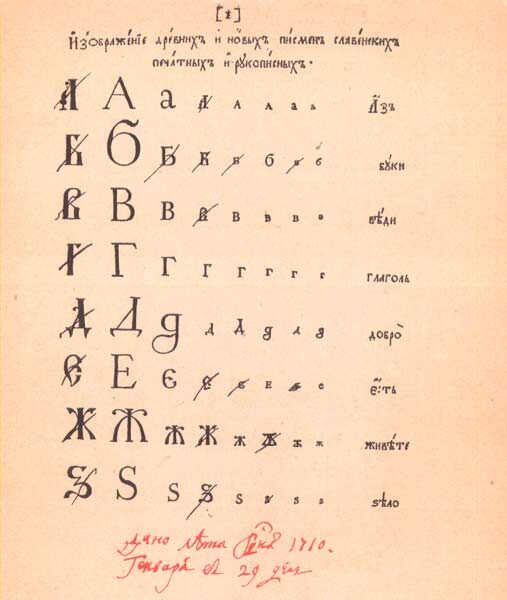 [1]
Изᲂбраженїе древнихъ и новыхъ писменъ славенскихъ
печатныхъ и рукописныхъ.
А А а А А А а а Азъ
Б Б Б Б Б Б в б буки
В В В В В В в в вѣди
Г Г Г Г Г г г г глаголь
Д Д д д Д д д д добро
Є Е Є Є Є є є є єсть
Ж Ж Ж Ж Ж Ж ж ж живѣте
Ѕ Ѕ Ѕ Ѕ Ѕ ѕ ѕ ѕ ѕѣло
Дано лѣта Гдня 1710.
Генваря въ 29 день